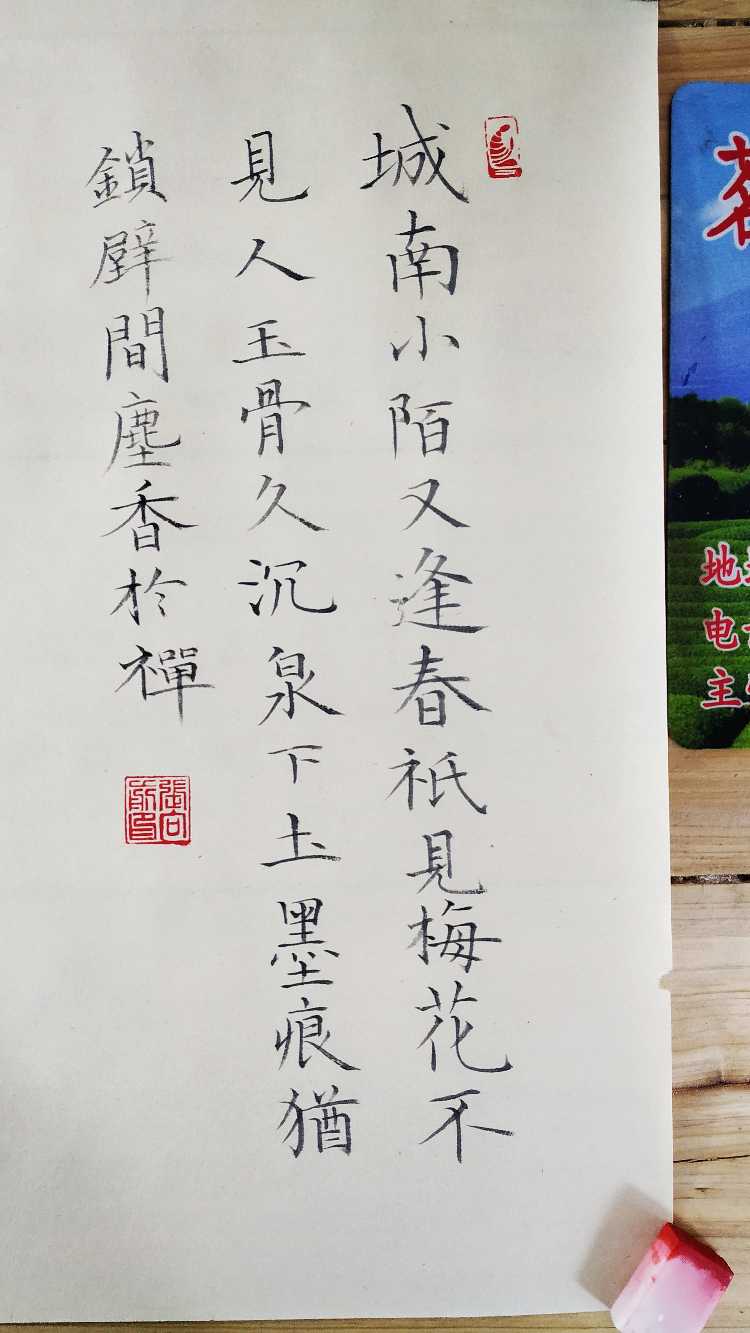 城南小陌又逢春祇見梅花不
見人玉骨久沉泉下圡墨痕猶
鎖壁間塵香於禪
地
电
主